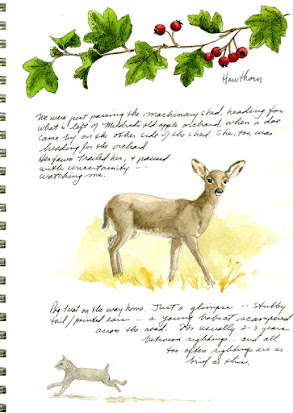 Hawthorn
We were just passing the machinery shed, heading for
what's left of Mildred's old apple orchard when a doe
came by on the other side of the shed. She, too, was
heading for the orchard.
Her fawn trailed her, & paused
with uncertainty --
watching me.
Big treat on the way home. Just a glimpse -- stubby
tail/pointed ears -- a young bobcat scampered
across the road. It's usually 2-3 years
between sightings... and all
too often sightings are as
brief as this.